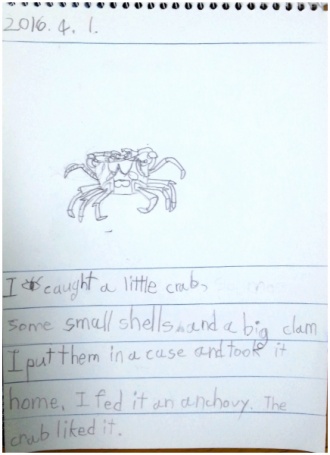 2016. 4. 1.
I caught a little crab,
some small shells and a big clam
I put them in a case and took it
home. I fed it an anchovy. The
crab liked it.